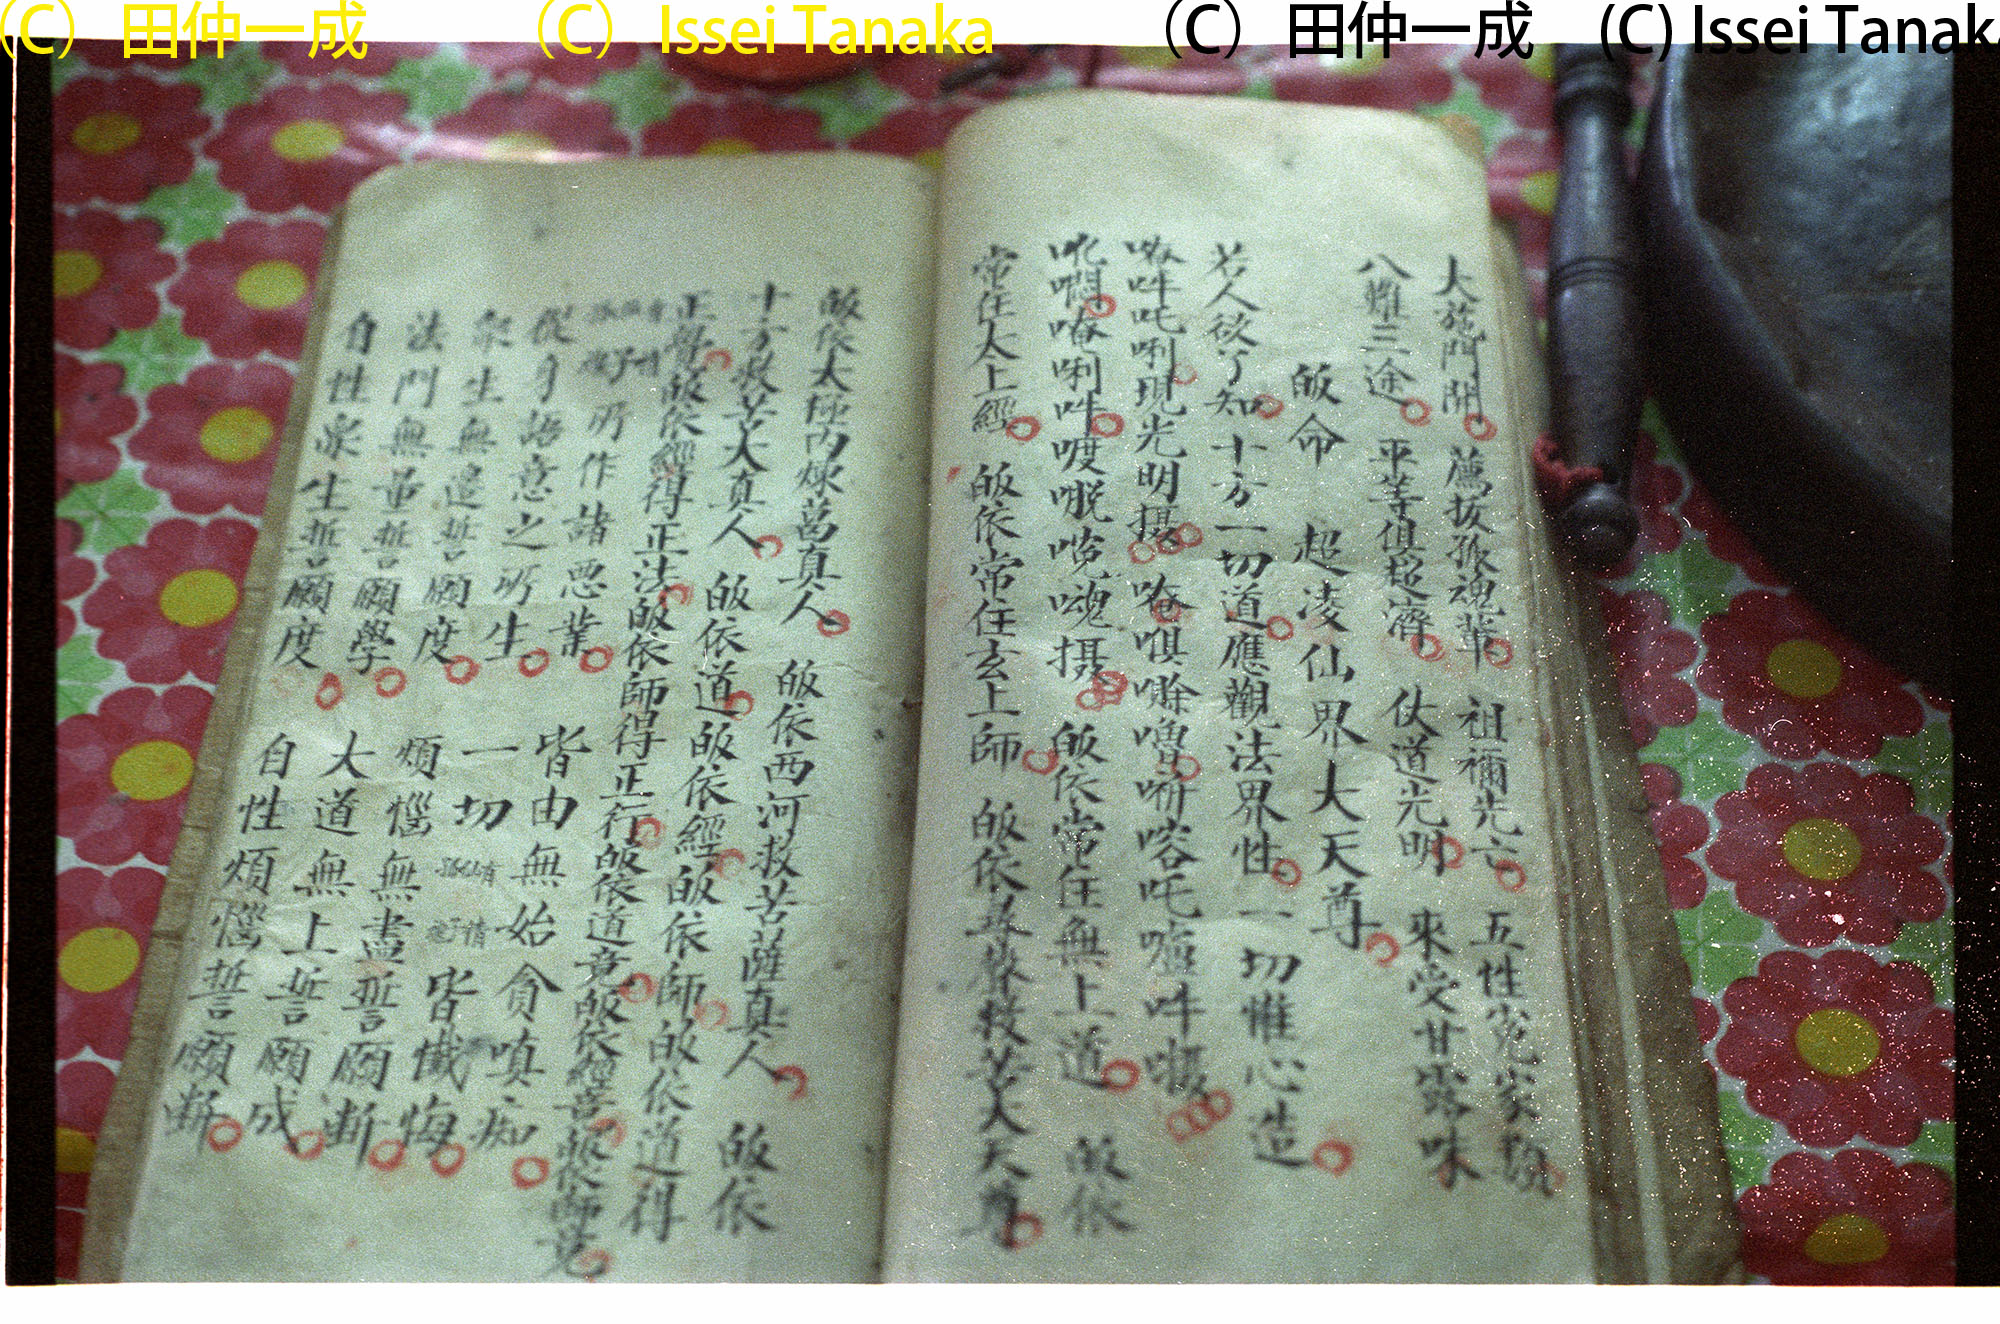 (C) 田仲一成 (C) Issei Tanaka (C) 田仲一成 (C) Issei Tanaka
大 門開 薦拔孤魂輩 祖禰先亡 五性 家
八難三途 平等俱超濟 仗道光明 來受甘露味
皈命 超凌仙界大天尊
若人欲了知 十方一切道 應觀法界性 一切惟心造
吽吒唎 現光明攝 唵 吒 吽
唵唎吽 攝 皈依常住無上道 皈依
常住太上經 皈依常住玄上師 皈依 救苦大天尊
皈依太極內煉葛真人 皈依西河救苦薩真人 皈依
十方救苦大真人 皈依道 皈依經 皈依師 皈依道得
正覺 皈依經得正法 皈依師得正行 皈依道竟 皈依經竟 皈依師竟
所作諸惡業 皆由無始貪嗔痴
從身語意之所生 一切 有情 孤魂 皆懺悔
眾生無邊誓願度 煩惱無盡誓願斷
法門無量誓願學 大道無上誓願成
自性眾生誓願度 自性煩惱誓願斷